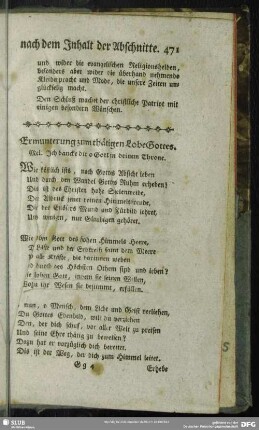 nach dem Inhalt der Abschnitte. 471
und wider die evangelischen Religionshelden,
besonders aber wider die überhand nehmende
Kleiderpracht und Mode, die unsere Zeiten un
glückselig macht.
Den Schluß machet der christliche Patriot mit
einigen besondern Wünschen.
Ermunterung zum thätigen Lobe Gottes.
Mel. Ich dancke dir o Gott in deinem Throne.
Wie köstlich ists, nach Gottes Absicht leben
Und durch den Wandel Gottes Ruhm erheben!
Das ist des Christen hohe Seelenweide,
Die Absicht jener reinen Himmelsfreude,
Die des Erlösers Mund und Fürbild lehret,
Und wenigen, nur Gläubigen gehöret.
des hohen Himmels Heere,
samt dem Meere
alle Kräfte, die darinnen weben
durch des Höchsten Othem sind und leben?
loben Gott, indem sie seinen Willen,
Wesen sie bestimmt, erfüllen.
o Mensch, dem Licht und Geist verliehen,
Du Gottes Ebenbild, wilt du verziehen
Den, der dich schuf, vor aller Welt zu preisen
und seine Ehre thätig zu beweisen?
Dazu hat er vorzüglich dich bereitet.
Das ist der Weg, der dich zum Himmel leitet.
G g 4
Erhebe
SLUB
DFG